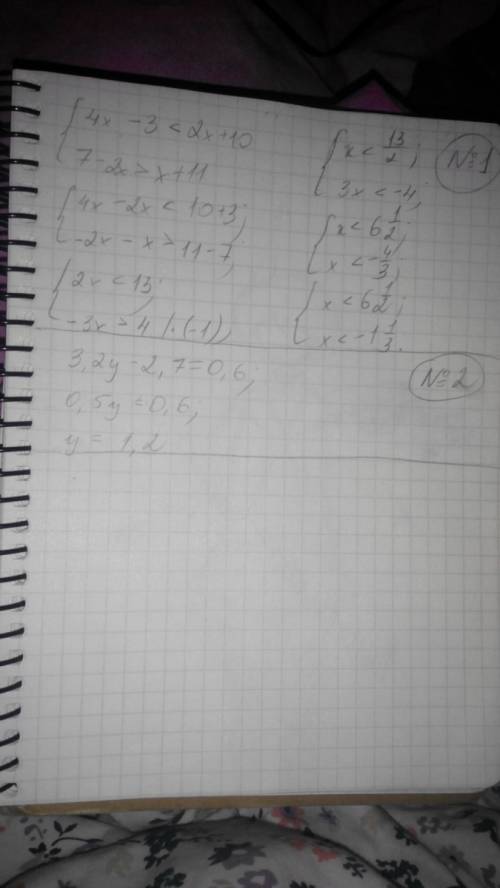 №1
{4x - 3 < 2x+10
7-2x > x+11
{4x - 2x < 10+3;
-2x - x > 11-7;
{2x < 13;
-3x > 4 |·(-1);
{x < 13/2;
3x < -4;
{x < 6 1/2;
x < -4/3;
{x < 6 1/2;
x < -1 1/3.
№2
3,2y - 2,7 = 0,6;
0,5y = 0,6;
y = 1,2